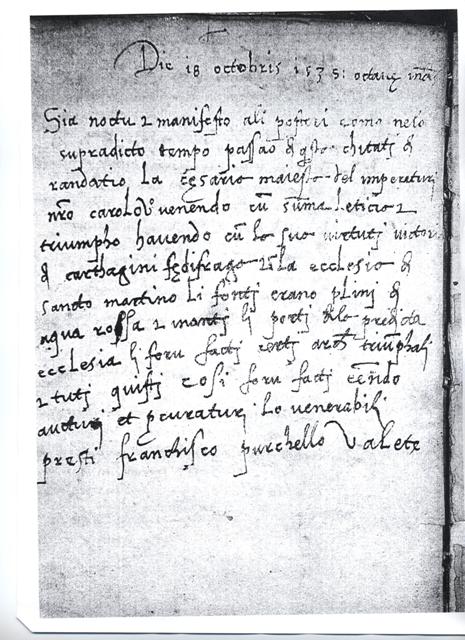 Die 18 octobris 1535: octavę
Sia notu 2 manifesto ali posteri como nelo
supradicto tempo passao q̄ qsta chitati d
randatio La cęsario maiesta del imperaturi
nr̄o carolo Vº venendo cū sūma leticia 2
triumpho havendo cū le suo virtutj
d carthagini fędifrago la ecclesia d
santo martino li fontj erano plinj d
aqua rossa 2 li portj dlo predicta
ecclesia lj foru factj certj triumphalj
2 tutj quistj cosi foru factj
auctu et pcuraturj Lo venerabilj
presti franchisco purchello Valete